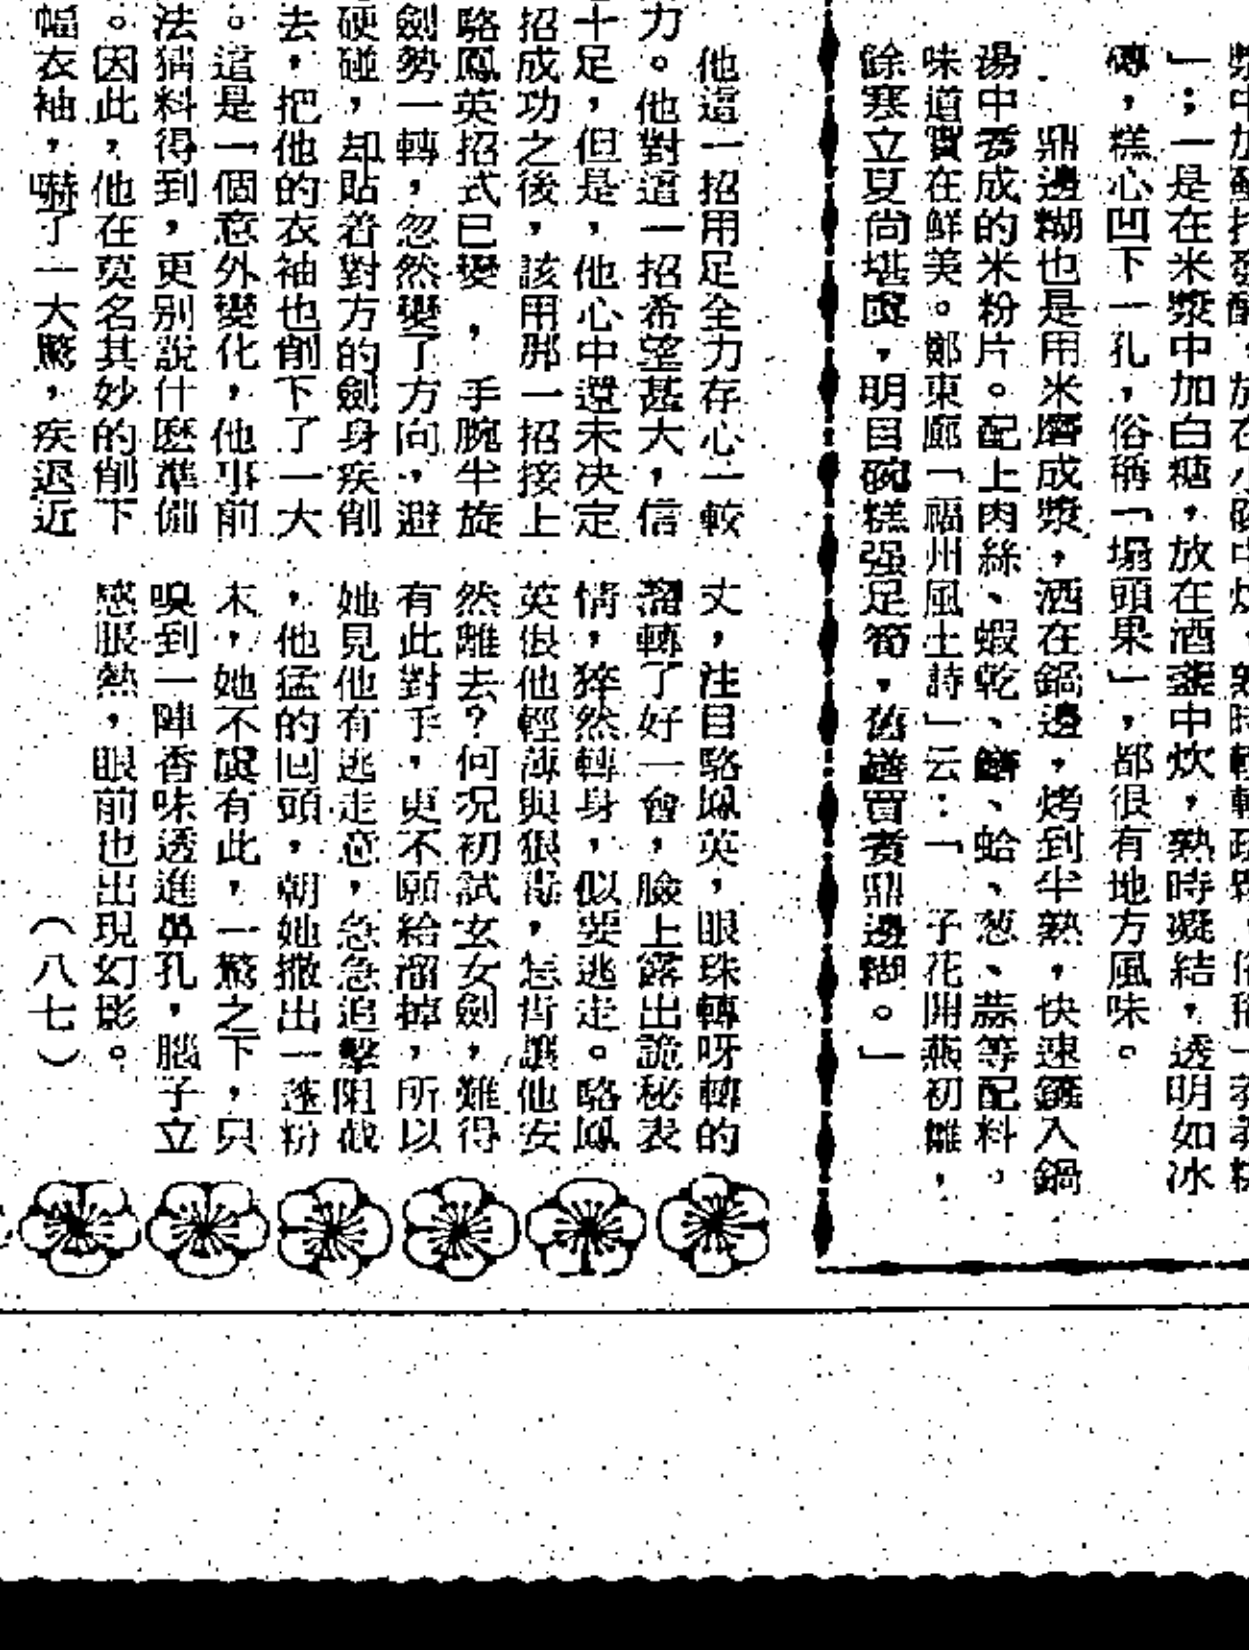 」；一是在米漿中加白糖，放在酒盞中炊，熟時凝結，透明如冰
磚，糕心凹下一孔，俗稱「塌頭果」，都很有地方風味。
鼎邊糊也是用米磨成漿，洒在鍋邊，烤到半熟，快速鏟入鍋
湯中煮成的米粉片。配上肉絲、蝦乾、蟶、蛤、葱、蒜等配料。
味道實在鮮美。鄭東廊「福州風土詩」云：「子花開燕初雛，
餘寒立夏尚堪虞，明目碗糕强足筍，舊鐺買煮鼎邊糊。」
他這一招用足全力存心一較
力。他對這一招希望甚大，信
十足，但是，他心中還未決定
招成功之後，該用那一招接上
駱鳳英招式已變，手腕半旋
劍勢一轉，忽然變了方向，避
硬碰，却貼着對方的劍身疾削
去，把他的衣袖也削下了一大
。這是一個意外變化，他事前
法猜料得到，更別說什麽準備
。因此，他在莫名其妙的削下
幅衣袖，嚇了一大驚，疾退近
丈，注目駱鳳英，眼珠轉呀轉的
溜轉了好一會，臉上露出詭秘表
情，猝然轉身，似要逃走。駱鳳
英恨他輕薄與狠毒，怎肯讓他安
然離去？何況初試玄女劍，難得
有此對手，更不願給溜掉，所以
她見他有逃走意，急急追擊阻截
，他猛的回頭，朝她撒出一蓬粉
末，她不虞有此，一驚之下，只
嗅到一陣香味透進鼻孔，腦子立
感脹熱，眼前也出現幻影。
（八七）